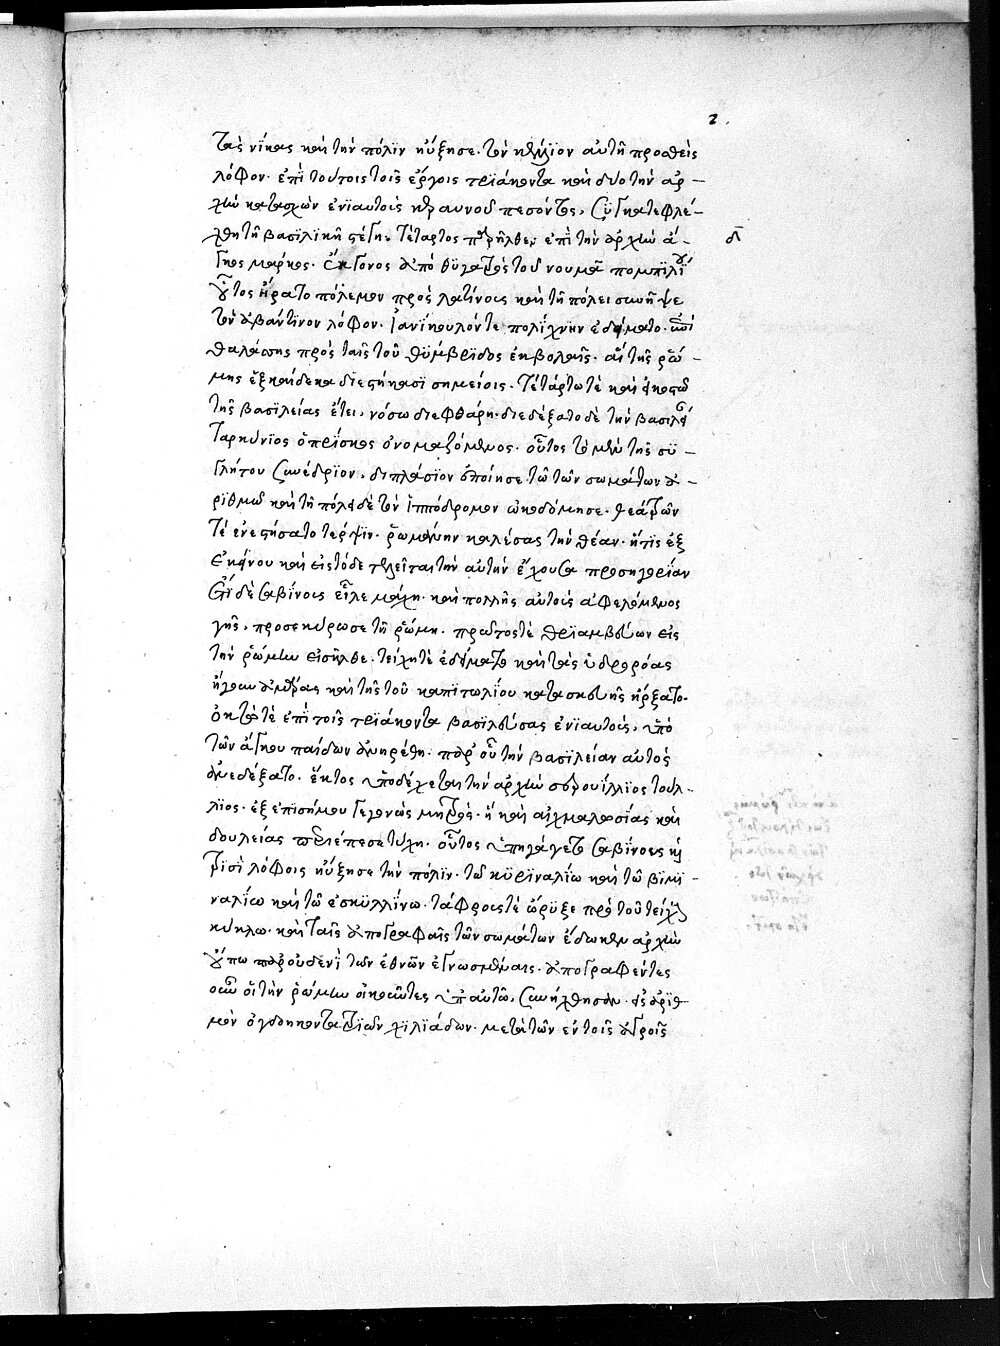 2.
τὰς νίκας καὶ τὴν πόλιν ηὔξησε. τὸν κέλιον αὐτῆ προσθεὶς
λόφον. ἐπὶ τούτοις τοῖς ἔργοις τριάκοντα καὶ δύο τὴν ἀρ-
χὴν κατασχὼν ἐνιαυτοὺς κεραυνοῦ πεσόντος, συγκατεφλέ-
χθη τῆ βασιλικῆ στέγη. τέταρτος παρῆλθεν ἐπὶ τὴν ἀρχὴν ἄ-
δ
γκος μάρκος. ἔκγονος ἀπὸ θυγατρὸς τοῦ νουμᾶ πομπιλίου
οὗτος ἤρατο πόλεμον πρὸς λατίνους καὶ τῆ πόλει συνῆψε
τὸν ἀβαντῖνον λόφον. ἰανίκουλόν τε πολίχνην ἐδείματο. καὶ
θαλάσσης πρὸς ταῖς τοῦ θύμβριδος ἐκβολαῖς. αἳ τῆς ῥώ-
μης ἑξκαίδεκα διεστήκασι σημείοις. τετάρτω τὲ καὶ εἰκοστῶ
τῆς βασιλείας ἔτει, νόσω διεφθάρη. διεδέξατο δὲ τὴν βασιλεί
ταρκύνιος ὁ πρίσκος ὀνομαζόμενος. οὗτος τὸ μὲν τῆς συ-
γκλήτου συνέδριον, διπλάσιον ἐποίησε τῶ τῶν σωμάτων ἀ-
ριθμῶ καὶ τῆ πόλει δὲ τὸν ἱππόδρομον ὠκοδόμησε. θεάτρων
τὲ ἐνεστήσατο τέρψιν. ῥωμαίην καλέσας τὴν θέαν. ἥτις ἐξ
ἐκείνου καὶ εἰς τόδε τελεῖται τὴν αὐτὴν ἔχουσα προσηγορίαν
εἷ δὲ σαβίνους εἷλε μάχη. καὶ πολλῆς αὐτοὺς ἀφελόμενος
γῆς, προσεκύρωσε τῆ ῥώμη. πρῶτός τὲ θριαμβεύων εἰς
τὴν ῥώμην εἰσῆλθε. τείχη τὲ ἐδείματο καὶ τὰς ὑδρορόας
ἤγουν ἀμάρας καὶ τῆς τοῦ καπιτωλίου κατασκευῆς ἤρξατο.
ὀκτὼ τὲ ἐπὶ τοῖς τριάκοντα βασιλεύσας ἐνιαυτοὺς, ὑπὸ
τῶν ἄγκου παίδων ἀνηρέθη. παρ' οὗ τὴν βασιλείαν αὐτὸς
ἀνεδέξατο. ἕκτος ὑποδέχεται τὴν ἀρχὴν σερουίλλιος τούλ-
λιος. ἐξ ἐπισήμου γεγονὼς μητρὸς. ἣ καὶ αἰχμαλωσίας καὶ
δουλείας περιέπεσε τύχη. οὗτος ὑπηγάγετο σαβίνους καὶ
τρισὶ λόφοις ηὔξησε τὴν πόλιν. τῶ κυριναλίω καὶ τῶ βιμι-
ναλίω καὶ τῶ ἐσκυλλίνω. τάφρους τὲ ὤρυξε πρὸ τοῦ τείχους
κύκλω. καὶ ταῖς ἀπογραφαῖς τῶν σωμάτων ἔδωκεν ἀρχὴν
οὔπω παρ' οὐδενὶ τῶν ἐθνῶν ἐγνωσμέναις. ἀπογραφέντες
οὖν οἱ τὴν ῥώμην οἰκοῦντες ὑπ' αὐτῶ, συνήχθησαν εἰς ἀριθ
μὸν ὀγδοηκοντατριῶν χιλιάδων. μετὰ τῶν ἐν τοῖς ἀγροῖς